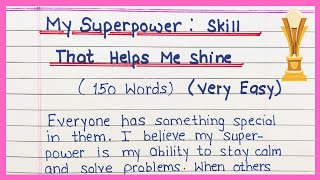 My Superpower : Skill
That Helps Me shine
( 150 Words) (very Easy)
Everyone has something special
in them. I believe my super-
power is my ability to stay calm
and solve problems. When others